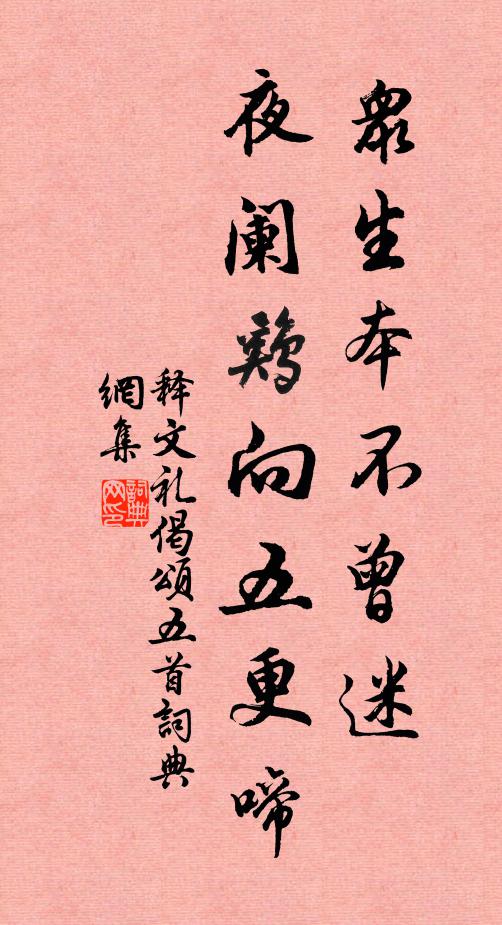 眾生本不曾迷
夜阑鷄向五更啼
释文礼偈頌五首詞典
網集
詞典
网印